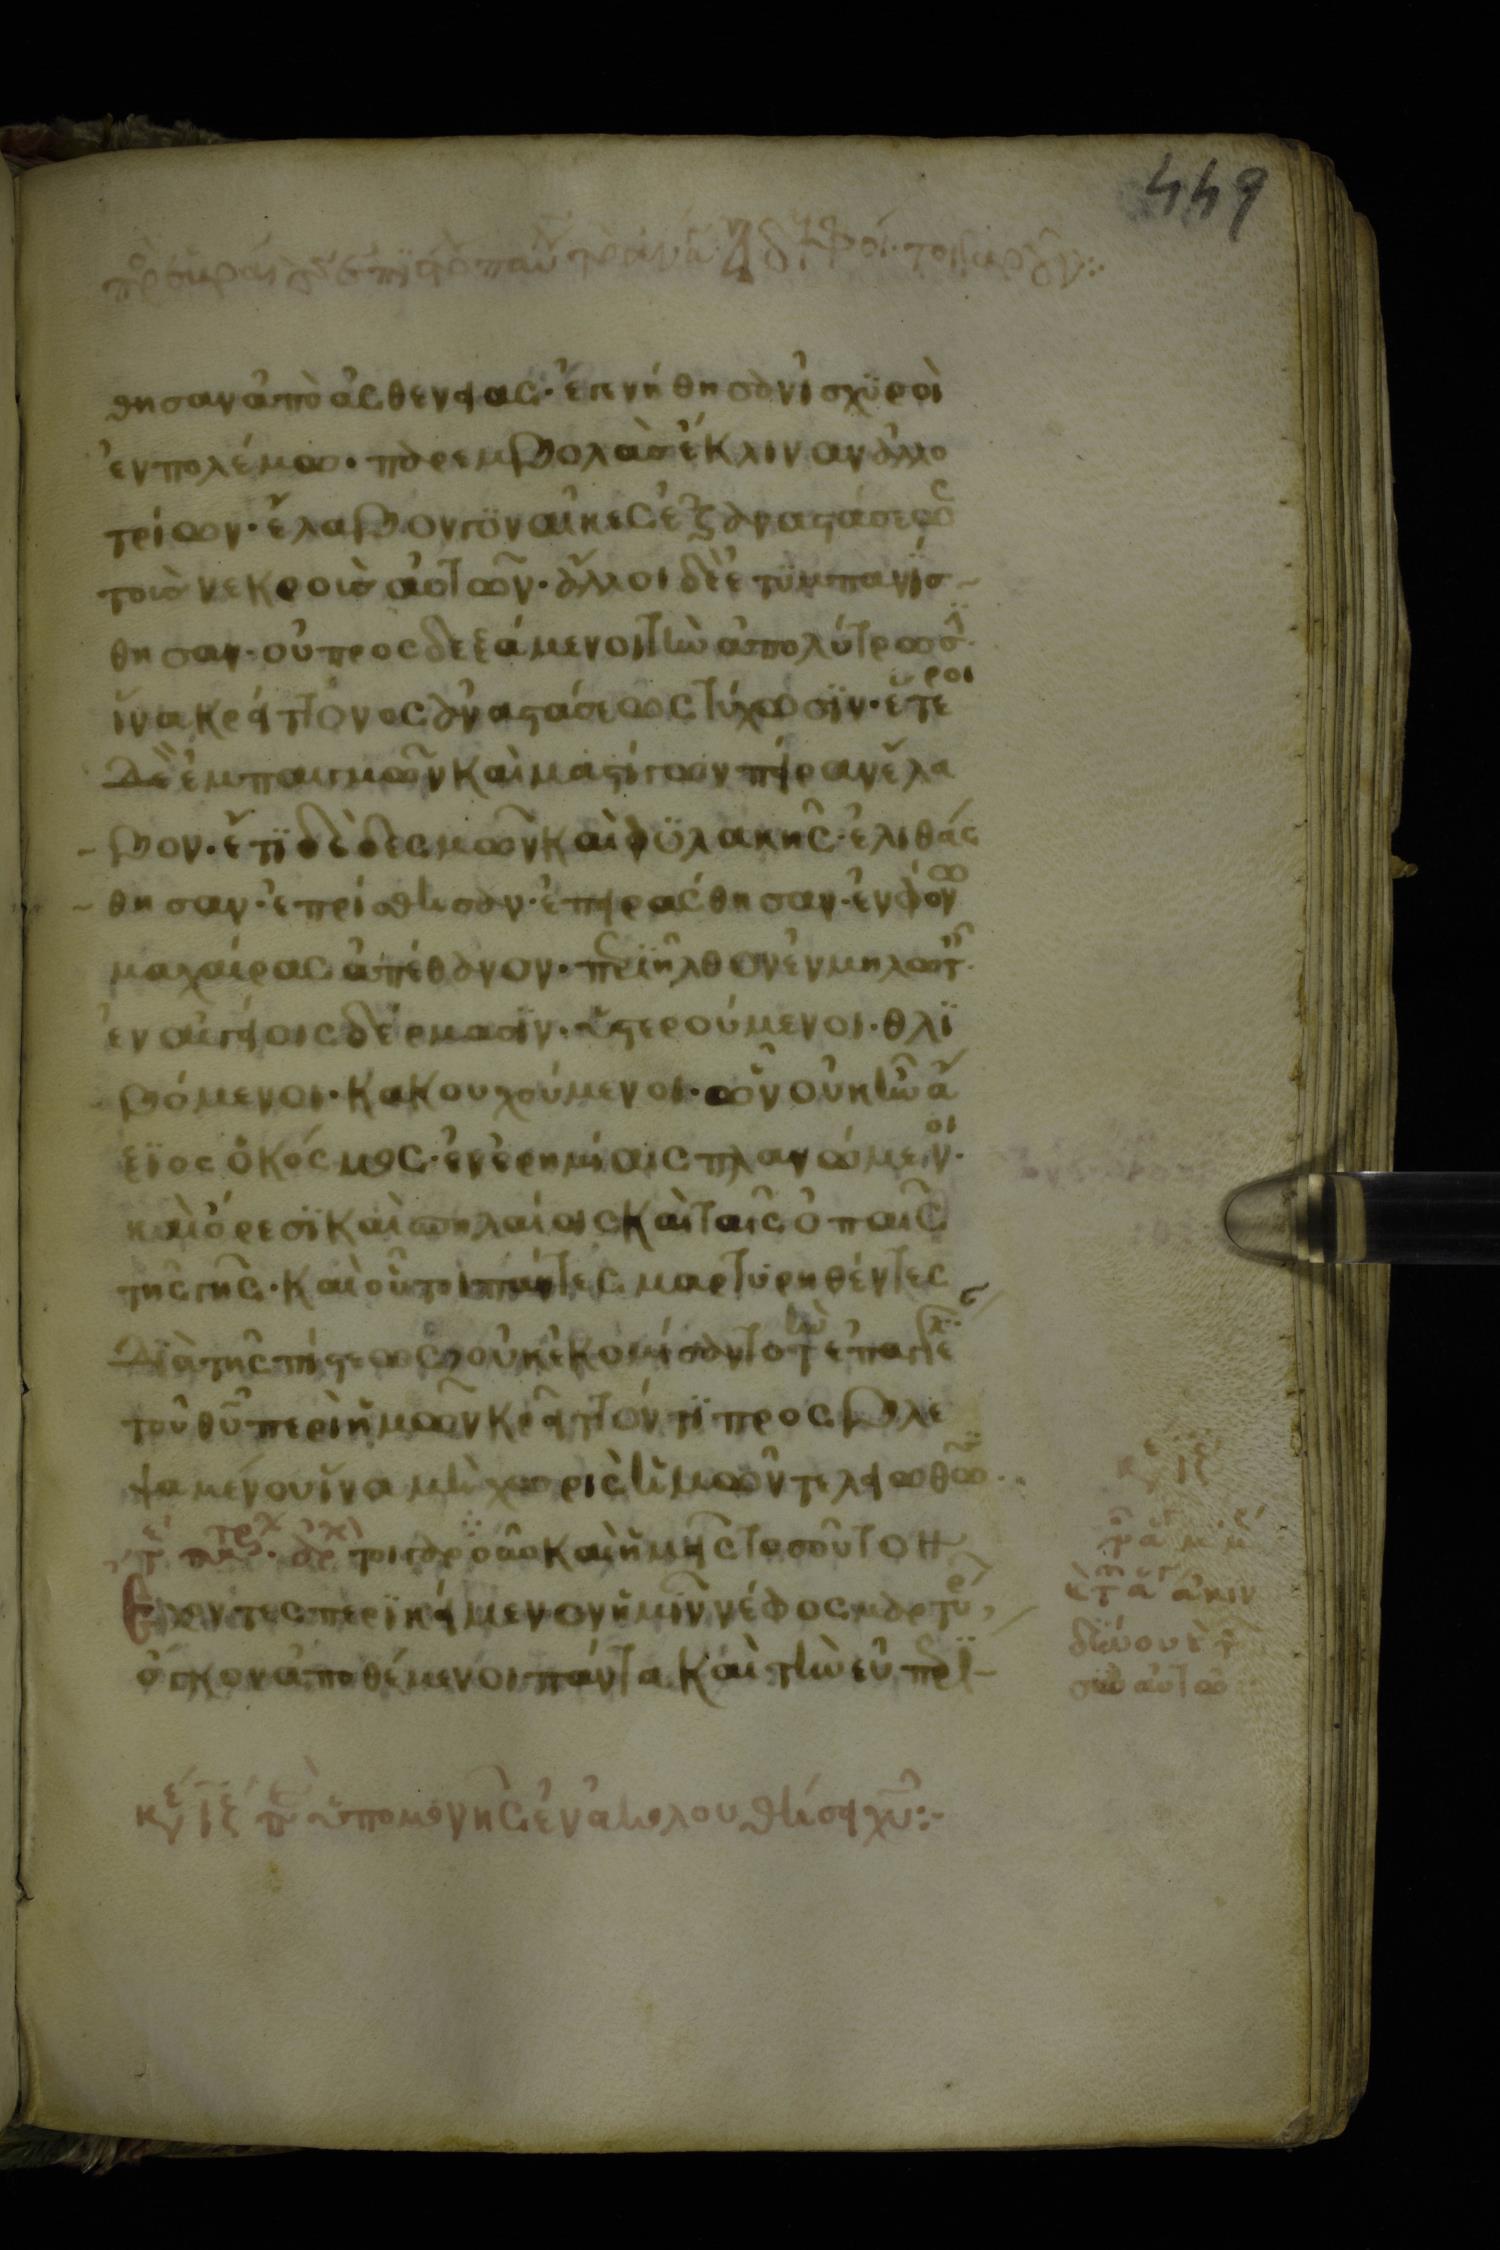 449
θησαν ἀπὸ ἀσθενείας· ἐγενήθησαν ἰσχϋροὶ
ἐν πολέμω· παρεμβολὰσ ἔκλιναν ἀλλο
τρίων· ἔλαβον γϋναῖκες ἐξ ἀναστάσεως
τοὺσ νεκροὺσ αὐτῶν· ἄλλοι δὲ ἐτϋμπανίσ
θησαν· οὐ προσδεξάμενοι τὴν ἀπολύτρωσϊ
ἵνα κρείττονος ἀναστάσεως τύχωσϊν· ἕτεροι
δὲ ἐμπαιγμῶν καὶ μαστίγων πεῖραν ἔλα
βον· ἔτϊ δὲ δεσμῶν καὶ φϋλακῆς· ἐλιθάσ
θησαν· ἐπρίσθησαν· ἐπειράσθησαν· ἐν φόνω
μαχαίρας ἀπέθανον· περϊῆλθον ἐν μηλωτ
ἐν αἰγείοις δέρμασϊν· ὑστερούμενοι· θλϊ
βόμενοι· κακουχούμενοι· ὧν οὐκ ἦν ἄ
ξϊος ὁ κόσμος· ἐν ἐρημίαις πλανώμενοι·
καὶ ὄρεσϊ καὶ σπηλαίοις καὶ ταῖς ὀπαῖς
τῆς γῆς· καὶ οὗτοι πάντες μαρτϋρηθέντες
διὰ τῆς πίστεως οὐκ ἐκομίσαντο τὴν ἐπαγγελ
τοῦ θῦ περὶ ἡμῶν κρεῖττόν τϊ προσβλε
ψαμένου ἵνα μὴ χωρὶς ἡμῶν τελειωθῶσϊ
τοιγαροῦν καὶ ἡμεῖς τοσοῦτον
ἔχοντες περϊκείμενον ἡμῖν νέφος μαρτύρ
ὄγκον ἀποθέμενοι πάντα καὶ τὴν εὐπερϊ
κε ιζ ὑπομονῆς ἐν ἀκολουθήσει χῦ